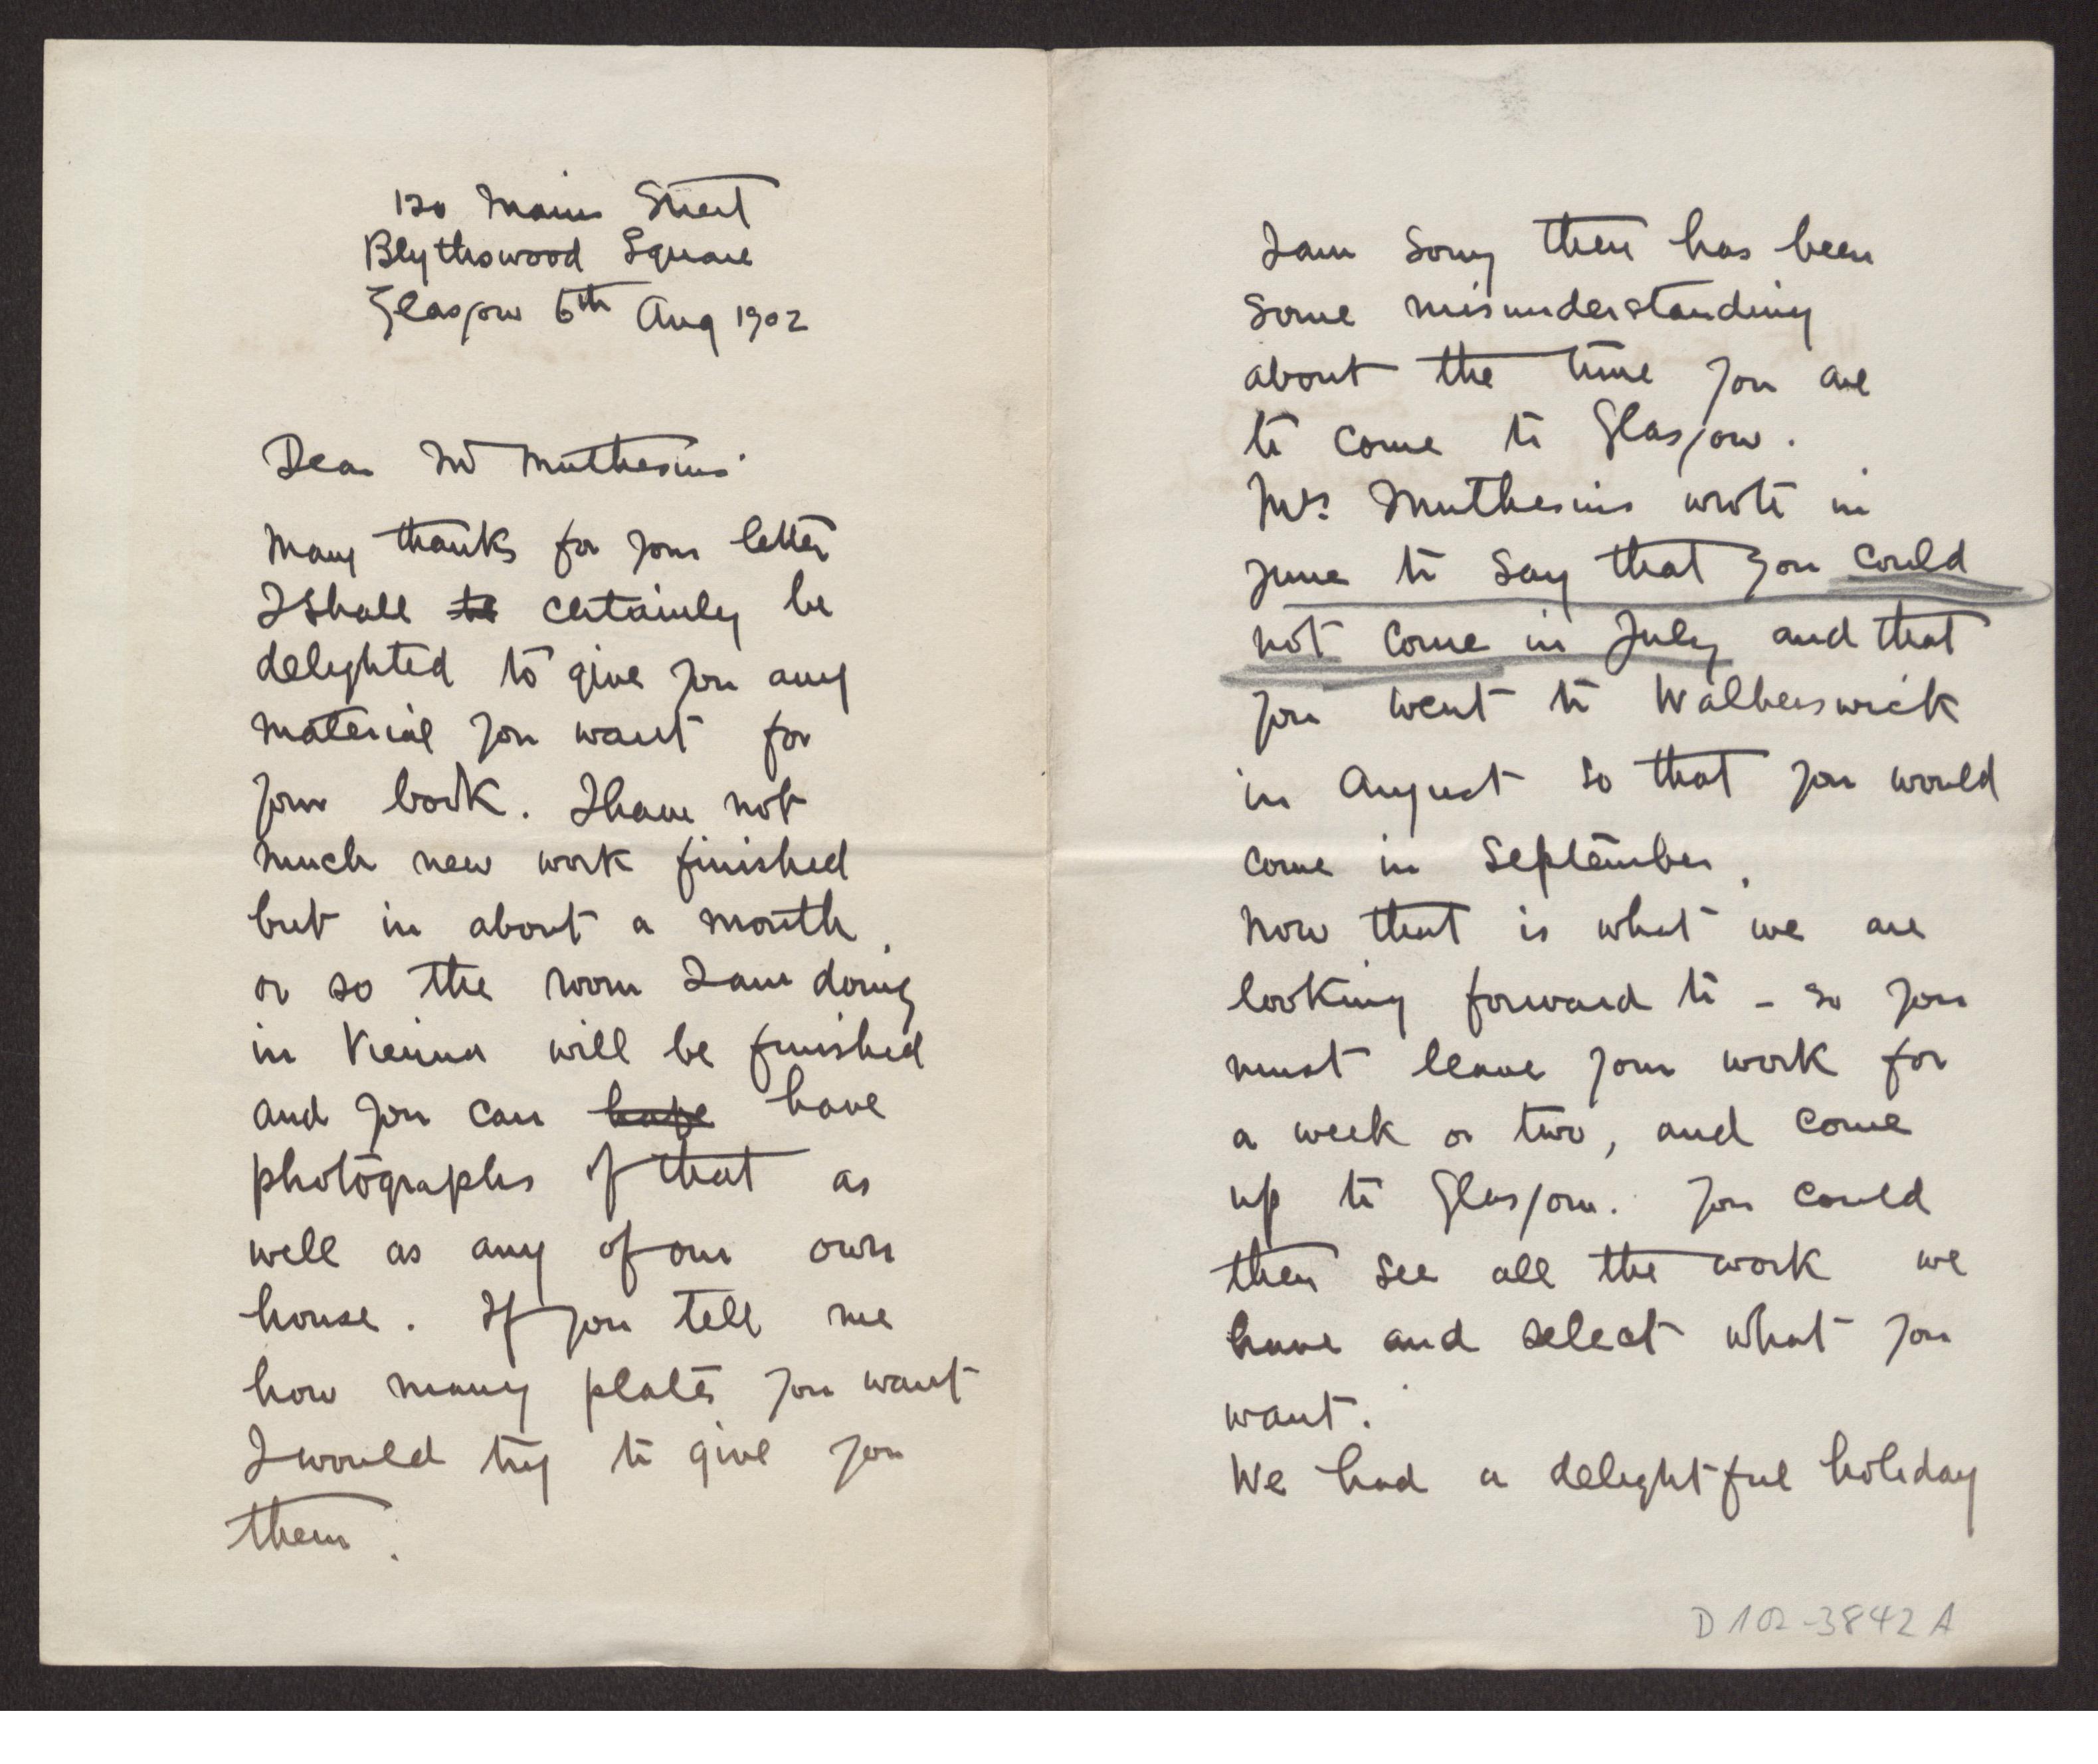 120 Mains Street
Blythswood Square
Glasgow 6th Aug 1902
Dear Mr Muthesius
Many thanks for your letter
I shall to certainly be
delighted to give you any
material you want for
your book. I have not
much new work finished
but in about a month
or so the room I am doing
in Vienna will be finished
and you can have have
photographs of that as
well as any of our own
house. If you tell me
how many plates you want
I would try to give you
them.
I am sorry there has been
some misunderstanding
about the time you are
to come to Glasgow.
Mrs Muthesius wrote in
June to say that you could
not come in July and that
you went to Walberswick
in August so that you would
come in September.
Now that is what we are
looking forward to - so you
must leave your work for
a week or two, and come
up to Glasgow. You could
then see all the work we
have and select what you
want.
We had a delightful holiday
D 102-3842 A